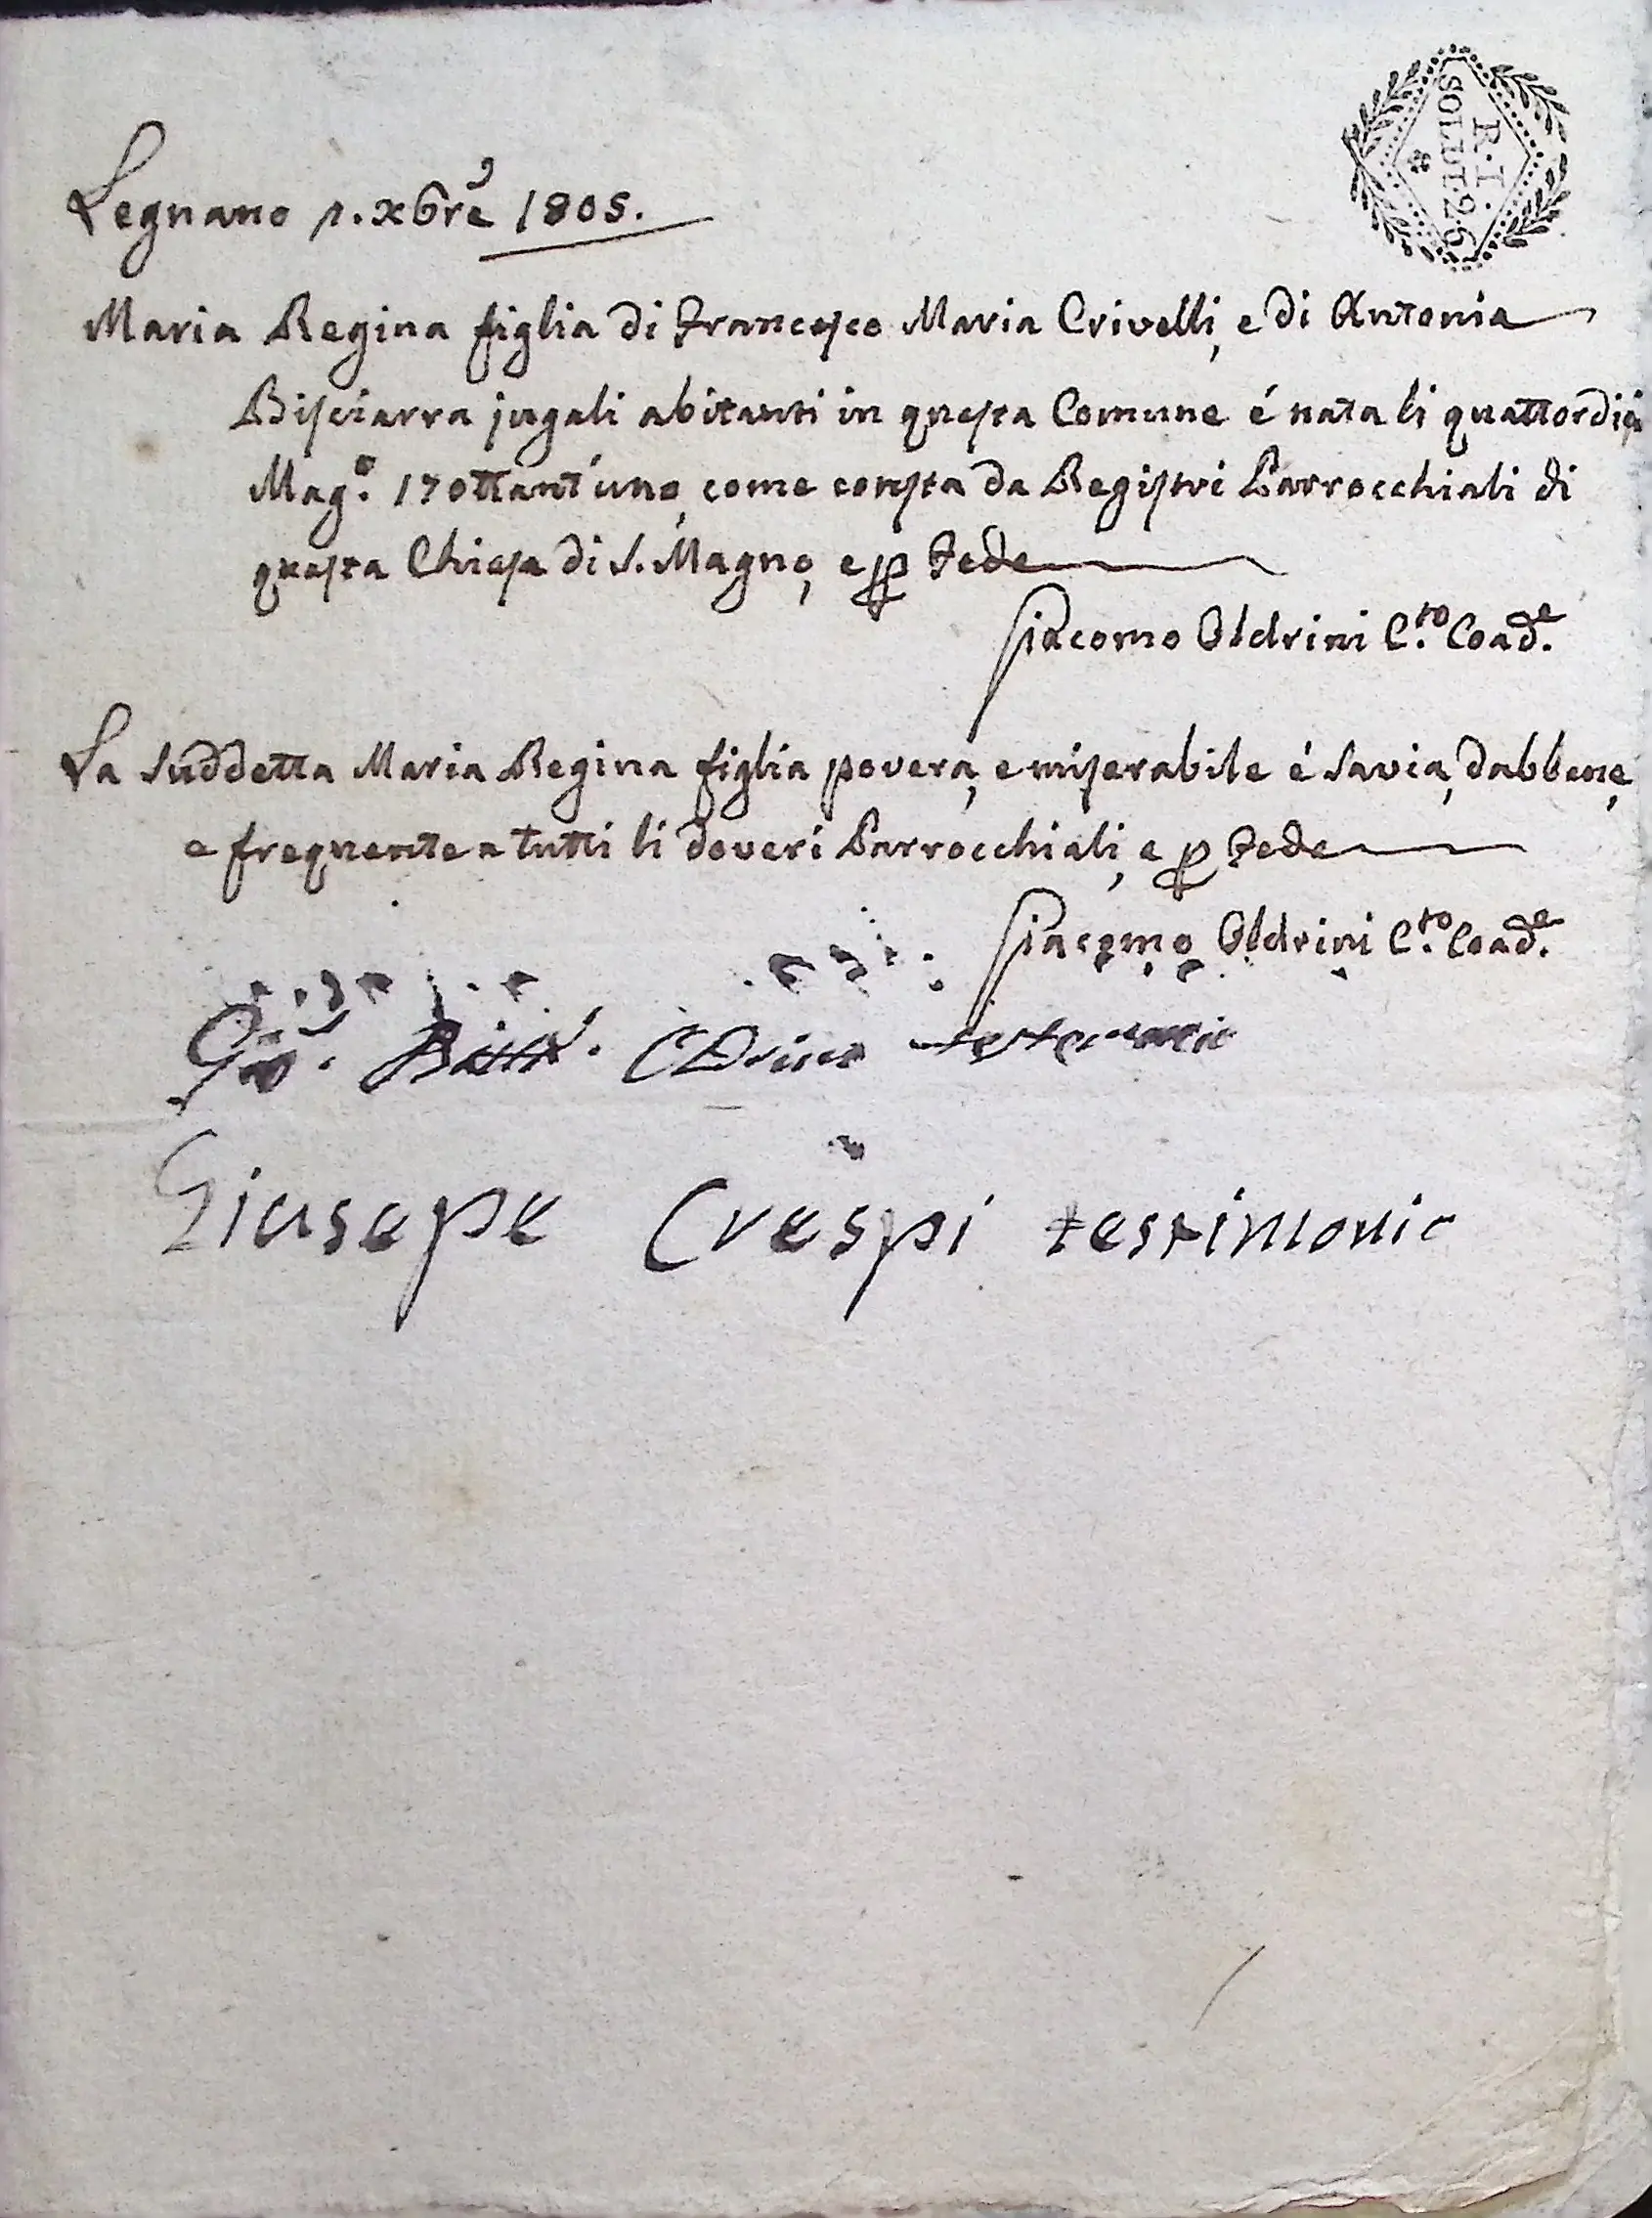 R. I.
SOLDI. 26
Legnano 1. x6re 1805.
Maria Regina figlia di Francesco Maria Crivelli, e di Antonia
Bisciarra jugali abitanti in questa Comune é nata li quattordici
Mag.o 17ottant'uno, come consta da Registri Parrocchiali di
questa Chiesa di S. Magno, e p Fede
Giacomo Oldrini C.to Coad.e
La suddetta Maria Regina figlia povera, e miserabile é savia, dabbene,
e frequente a tutti li doveri Parrocchiali, e p Fede
Giacomo Oldrini C.to Coad.e
Gio. Batt.
Giusepe Crespi testimonio